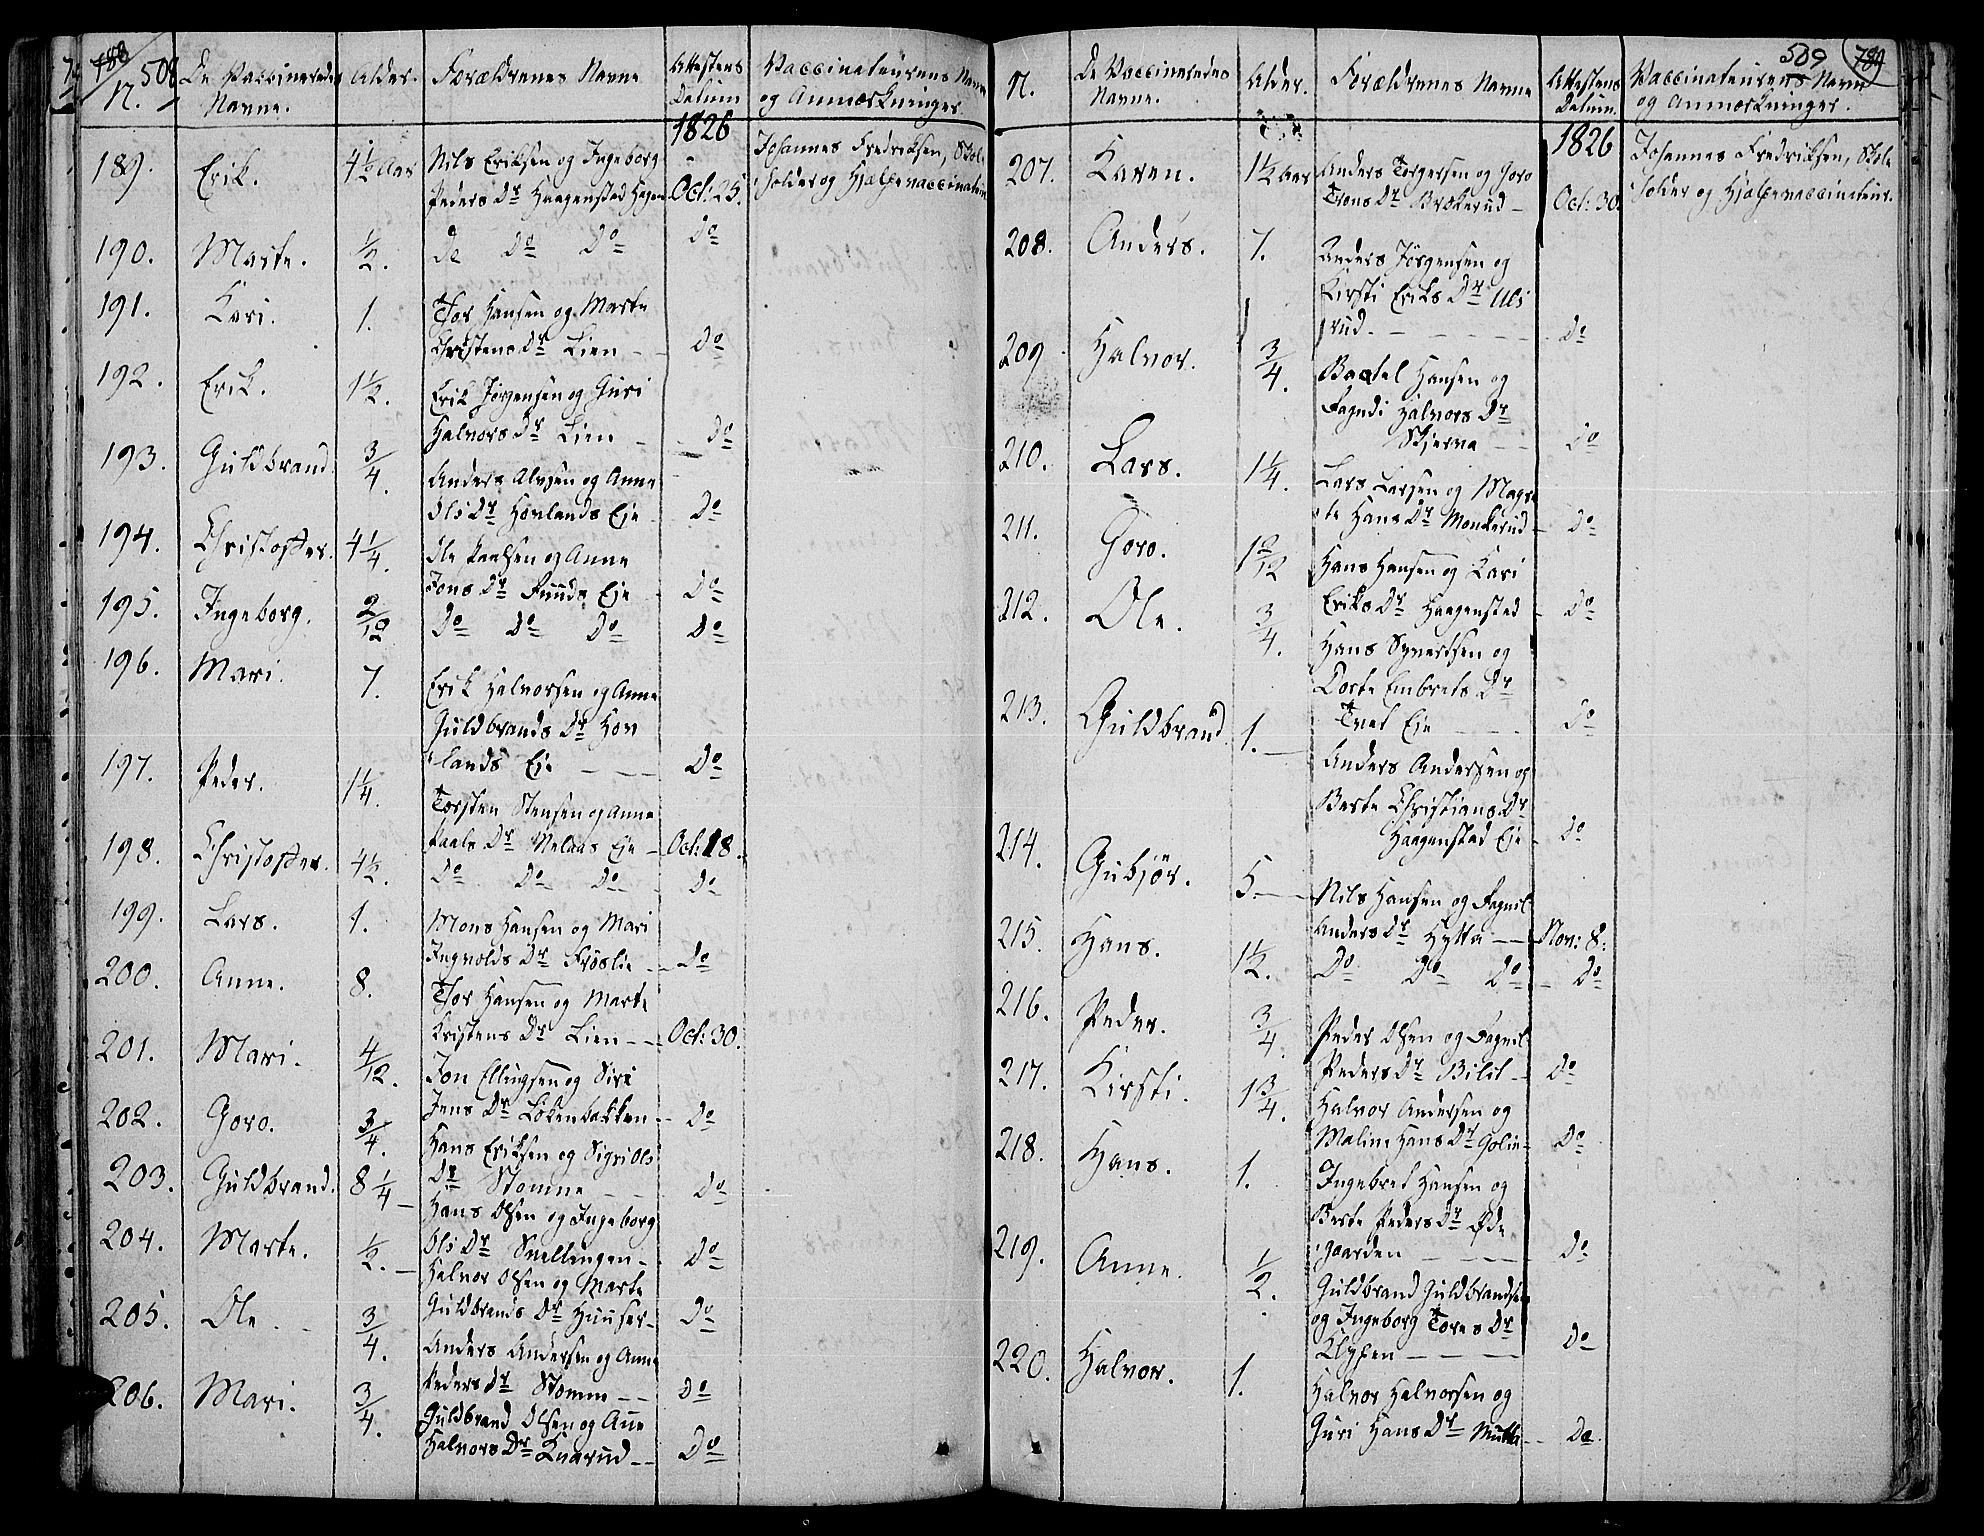 508
N.
De Vaccineredes
Navne.
Alder.
Forældrenes Navne
Attestens
Datum
Vaccinateurens Navn
og Anmærkninger.
1826
189. Erik. 4½ Aar Nils Eriksen og Ingeborg
Peders Dr Haagenstad Oct: 25.
Johannes Fredriksen, Skole
holder og Hjelpevaccinateur
190. Marte. ½. De Do Do Do
191. Kari. 1. Thor Hansen og Marte
Christens Dr Lien Do
192. Erik. 1½. Erik Jörgensen og Guri
Halvors Dr Lien Do
193. Guldbrand ¾. Anders Alvsen og Anne
Ols Dr Hovlands Eje Do
194. Christoffer. 4¼. Ole Paalsen og Anne
Jons Dr Eje Do
195. Ingeborg. 2/12 Do Do Do Do
196. Mari. 7. Erik Halvorsen og Anne
Guldbrands Dr Hov
lands Eje Do
197. Peder. 1¼. Torsten Stensen og Anne
Paals Dr Melaas Eje Oct: 18.
198. Christoffer. 4½. Do Do Do Do
199. Lars. 1. Mons Hansen og Mari
Ingvolds Dr Fröslie Do
200. Anne. 8. Thor Hansen og Marte
Kristens Dr Lien Oct: 30.
201. Mari. 4/12. Jon Ellingsen og Siri
Jens Dr Lökenbakken Do
202. Goro. ¾. Hans Eriksen og Sigri Ols
Dr Stomne Do
203. Guldbrand. 8¼ Hans Olsen og Ingeborg
Ols Dr Snellingen Do
204. Marte. ½. Halvor Olsen og Marte
Guldbrands Dr Do
205. Ole. ¾. Anders Andersen og Anne
Peders Dr Stomne Do
206. Mari. ¾. Guldbrand Olsen og Anne
Halvors Dr Knarud Do
509
N.
De Vaccineredes
Navne.
Alder.
Forældrenes Navne
Attestens
Datum.
Vaccinateurens Navn
og Anmærkninger.
1826
207. Karen. 1½ Aar Anders Torgersen og Goro
Trons Dr Brækerud Oct: 30.
Johannes Fredriksen, Skole
holder og Hjelpevaccinateur.
208. Anders. 7. Anders Jörgensen og
Kirsti Eriks Dr Uls
rud Do
209. Halvor. ¾. Bartel Hansen og
Fagndi Halvors Dr
Skjerva Do
210. Lars. 1¼. Lars Larsen og Magre
te Hans Dr Monkerud Do
211. Goro. Hans Hansen og Kari
Eriks Dr Haagenstad Do
212. Ole. ¾. Hans Syvertsen og
Dorte Embrets Dr
Tvet Eje Do
213. Guldbrand 1. Anders Andersen og
Berte Christians Dr
Haagenstad Eje Do
214. Gubjör. 5. Nils Hansen og Fagnil
Anders Dr Hytta Nov: 8.
215. Hans. 1½. Do Do Do Do
216. Peder. ¾. Peder Olsen og Fagnil
Peders Dr Bilit Do
217. Kirsti. 1¾. Halvor Andersen og
Malin Hans Dr Golie Do
218. Hans. 1. Ingebret Hansen og
Berte Peders Dr Öde
gaarden Do
219. Anne. ½. Guldbrand Guldbrandsen
og Ingeborg Tores Dr
Klypen Do
220. Halvor. 1. Halvor Halvorsen og
Guri Hans Dr Mutta Do